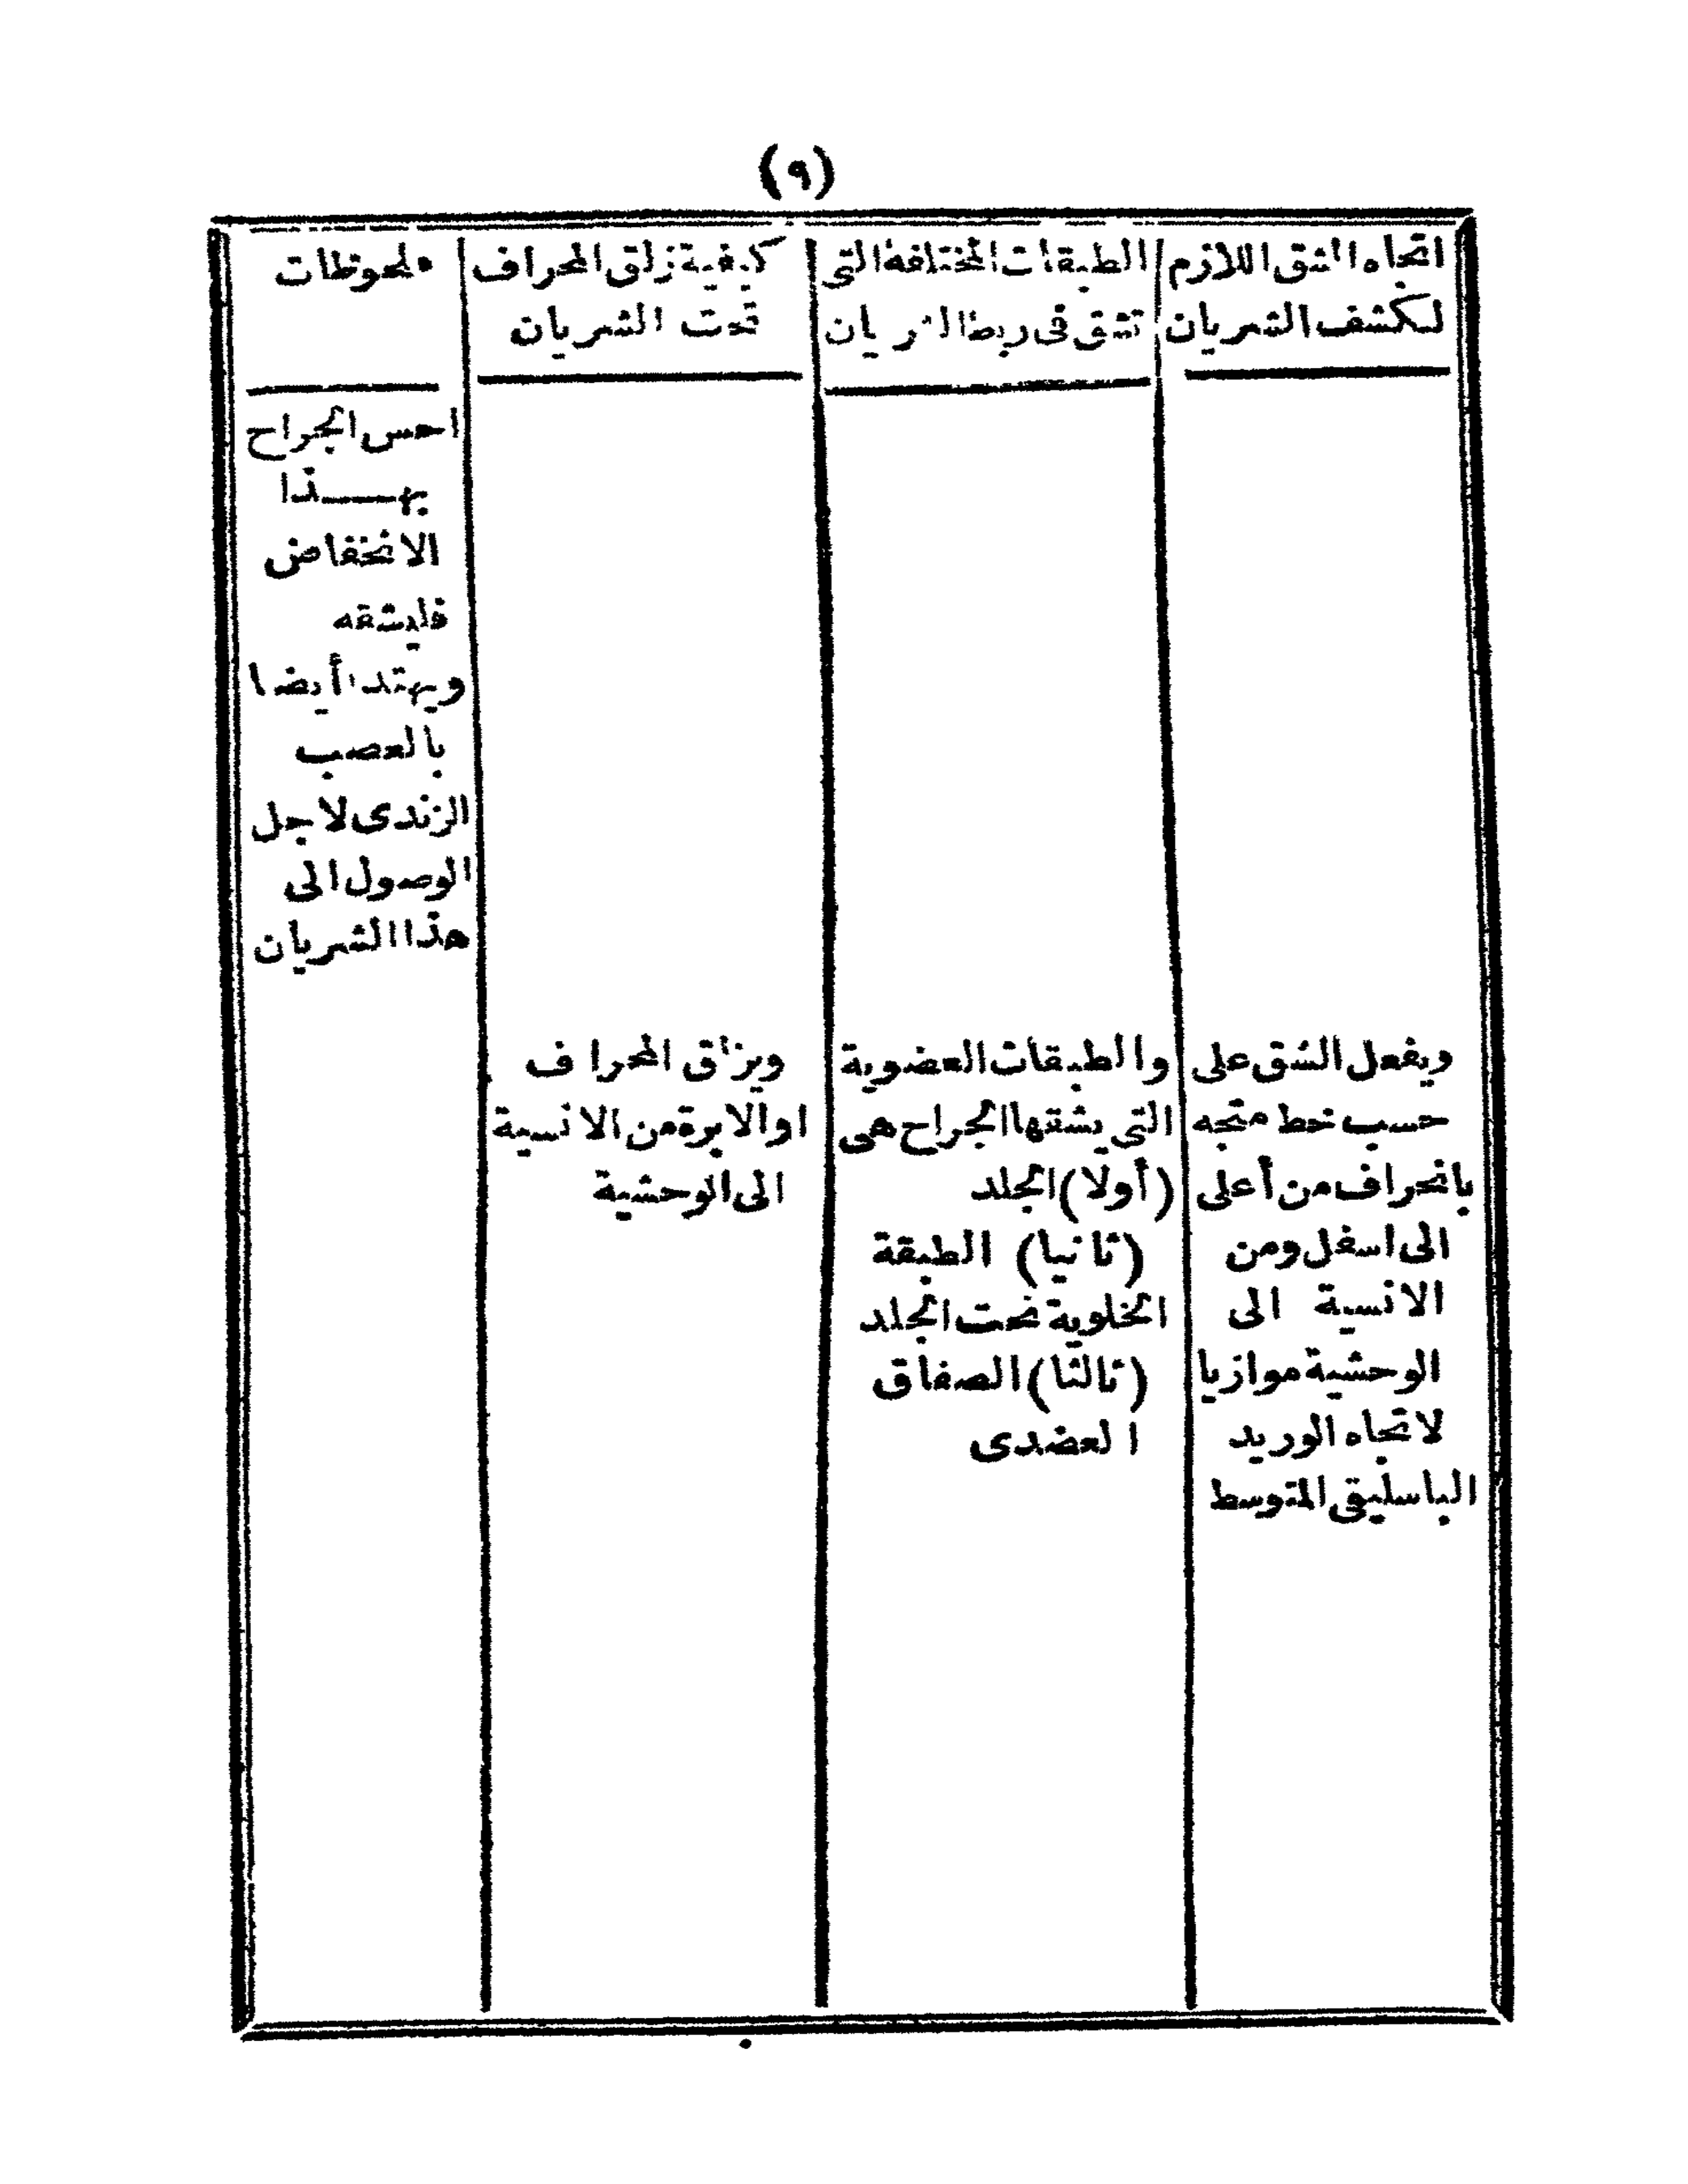 (٩)
اتجاه الشق اللازم
لكشف الشريان
الطبقات المختلفة التى
تشق فى ربط الشريان
كيفية زلق المحراف
تحت الشريان
ملحوظات
احس الجراح
بهـــذا
الانخفاض
فليشقه
ويهتد أيضا
بالعصب
الزندى لاجل
الوصول الى
هذا الشريان
ويفعل الشق على
حسب خط متجه
بانحراف من أعلى
الى اسفل ومن
الانسية الى
الوحشية موازيا
لاتجاه الوريد
الباسليقى المتوسط
والطبقات العضوية
التى يشقها الجراح هى
(أولا) الجلد
(ثانيا) الطبقة
الخلوية تحت الجلد
(ثالثا) الصفاق
العضدى
ويزلق المحراف
او الابرة من الانسية
الى الوحشية